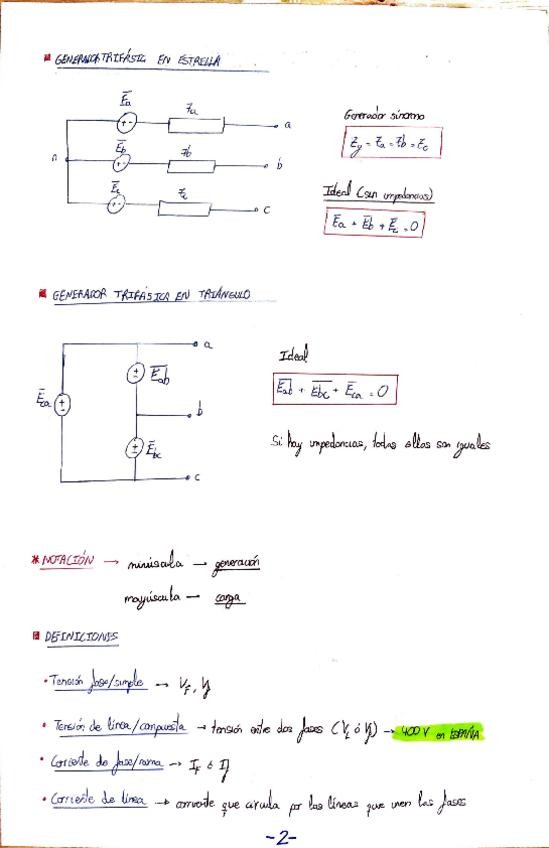 GENERADOR TRIFÁSICO EN ESTRELLA
Ēa
Za
a
Generador síncrono
Ēb
Zb
n
b
Zy = Za = Zb = Zc
Ēc
Zc
c
Ideal (sin impedancias)
Ēa + Ēb + Ēc = 0
GENERADOR TRIFÁSICA EN TRIÁNGULO
a
Ideal
Ēab
Ēca
Ēab + Ēbc + Ēca = 0
b
Ēbc
Si hay impedancias, todas ellas son iguales
c
* NOTACIÓN → minúscula → generación
mayúscula → carga
DEFINICIONES
• Tensión fase/simple → VF, Vf
• Tensión de línea/compuesta → tensión entre dos fases (VL ó Vl) → 400 V en ESPAÑA
• Corriente de fase/rama → IF ó If
• Corriente de línea → corriente que circula por las líneas que unen las fases
-2-